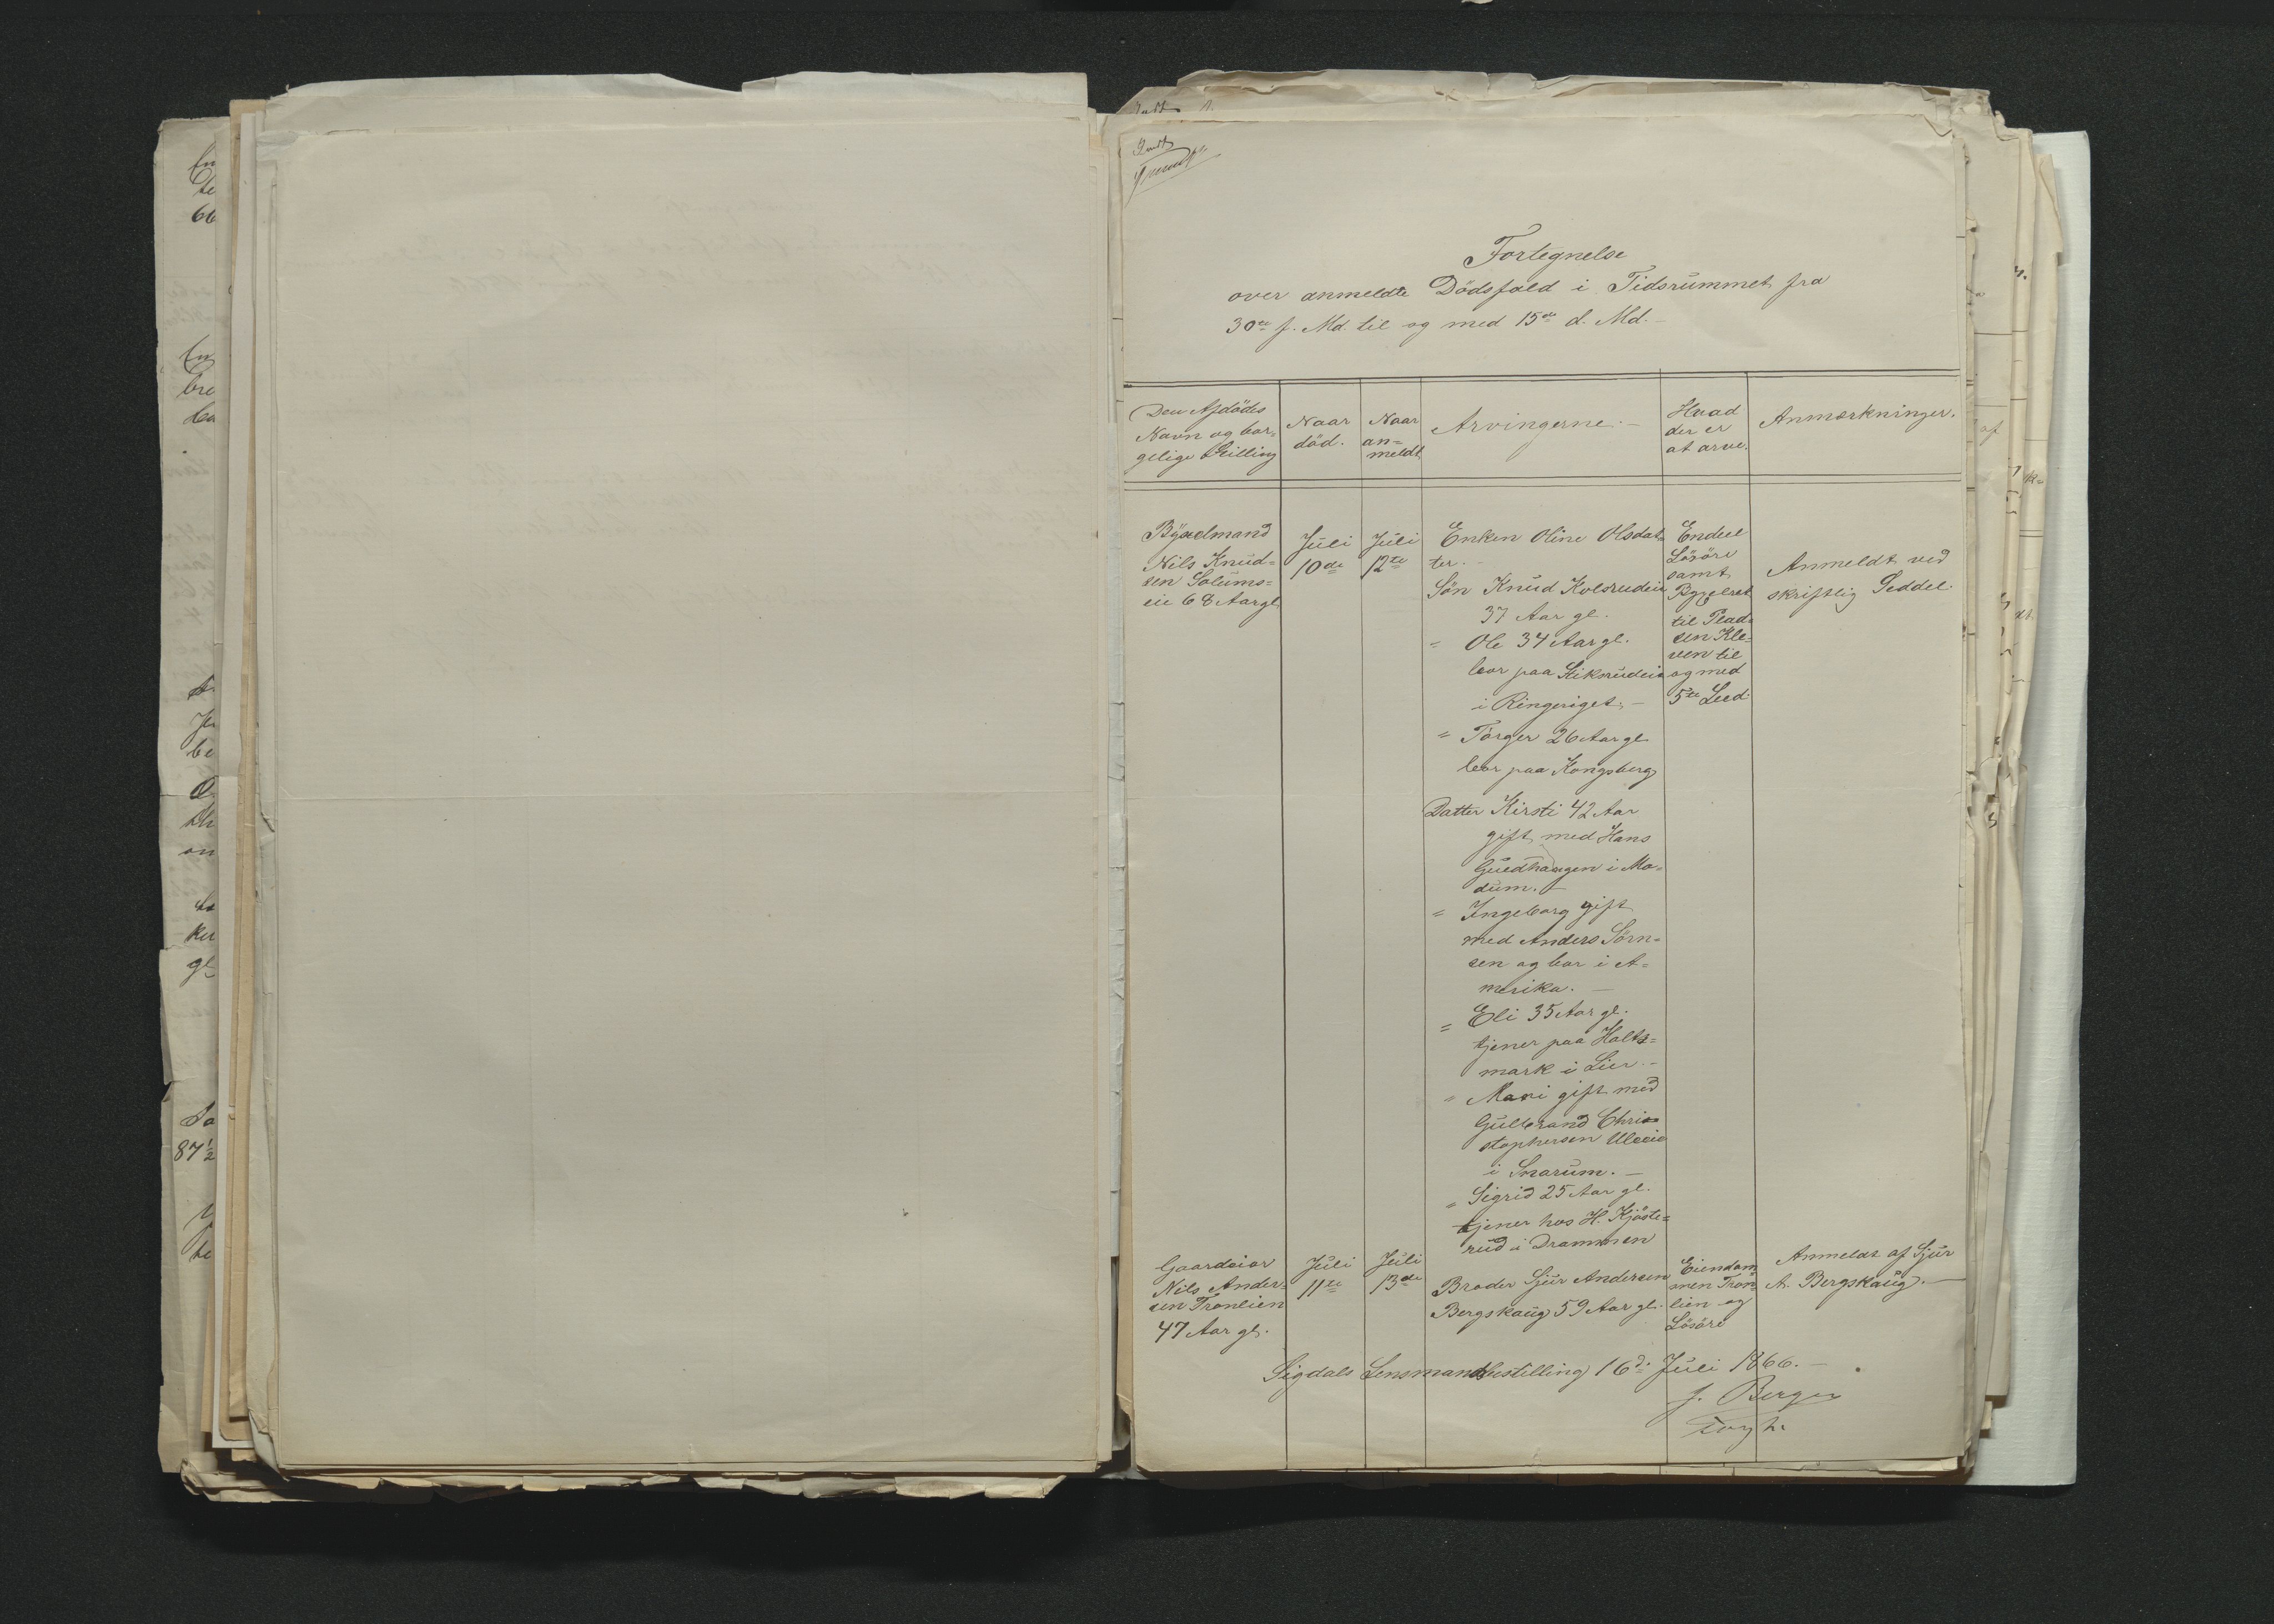 Fortegnelse
over anmeldte Dödsfald i Tidsrummet fra
30te f. Md. til og med 15de d. Md. –
Den Afdödes
Navn og bor-
gelige Stilling
Naar
död.
Naar
an=
meldt
Arvingerne. –
Hvad
der er
at arve.
Anmærkninger.
Byxelmand
Nils Knud=
sen Solums=
eie 68 Aar gl.
Juli
10de
Juli
12te
Enken Oline Olsdat=
ter. –
Sön Knud Kolsrudeie
37 Aar gl.
" Ole 34 Aar gl.
boer paa
i Ringeriget. –
" Torger 26 Aar gl
boer paa Kongsberg
Datter Kirsti 42 Aar
gift med Hans
Guldhaugen i Mo=
dum. –
" Ingeborg gift
med Anders Sörn=
sen og bor i A=
merika. –
" Eli 35 Aar gl.
tjener paa Holts=
mark i Lier. –
" Mari gift med
Gulbrand Chri
stophersen
i Snarum. –
" Sigrid 25 Aar gl.
tjener hos H. Kjöste=
rud i Drammen
Endeel
Lösöre
samt
Byxelret
til Plad=
sen Kle=
ven til
og med
5te Leed
Anmeldt ved
skriftlig Seddel.
Gaardeier
Nils Ander=
sen Tronlien
47 Aar gl.
Juli
11te
Juli
13de
Broder Sjur Andersen
Bergskaug 59 Aar gl.
Eiendom
men Tron=
lien og
Lösöre
Anmeldt af Sjur
A. Bergskaug. –
Sigdals Lensmandsbestilling 16d. Juli 1866. –
J. Berger
87½
66